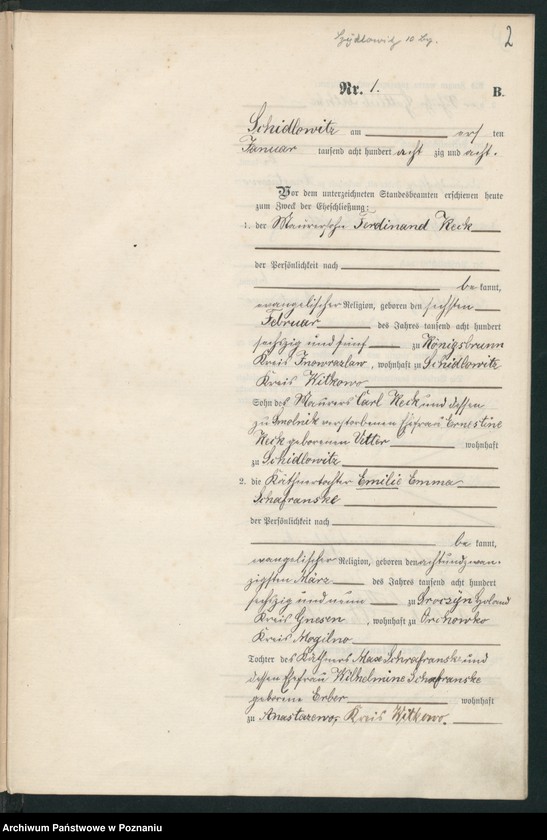 Szydłowitz 10 Bg.
2
Nr. 1.
B.
Schidlowitz am ersten
Januar tausend acht hundert acht zig und acht.
Vor dem unterzeichneten Standesbeamten erschienen heute
zum Zweck der Eheschließung:
1. der Maurersohn Ferdinand Keck
der Persönlichkeit nach
bekannt,
evangelischer Religion, geboren den sechsten
Februar des Jahres tausend acht hundert
sechszig und fünf zu Königsbrunn
Kreis Inowrazlaw, wohnhaft zu Schidlowitz
Kreis Witkowo
Sohn des Maurers Carl Keck und dessen
zu Smolnik verstorbenen Ehefrau Ernestine
Keck geborenen Vetter wohnhaft
zu Schidlowitz
2. die Käthnertochter Emilie Emma
Schafranske
der Persönlichkeit nach
bekannt,
evangelischer Religion, geboren den achtundzwan-
zigsten März des Jahres tausend acht hundert
sechszig und neun zu Procyn Holand
Kreis Gnesen, wohnhaft zu Orchowko
Kreis Mogilno
Tochter des Käthners Max Schrafranske und
dessen Ehefrau Wilhelmine Schafranske
geborene Erber wohnhaft
zu Anastazewo, Kreis Witkowo.
Archiwum Państwowe w Poznaniu